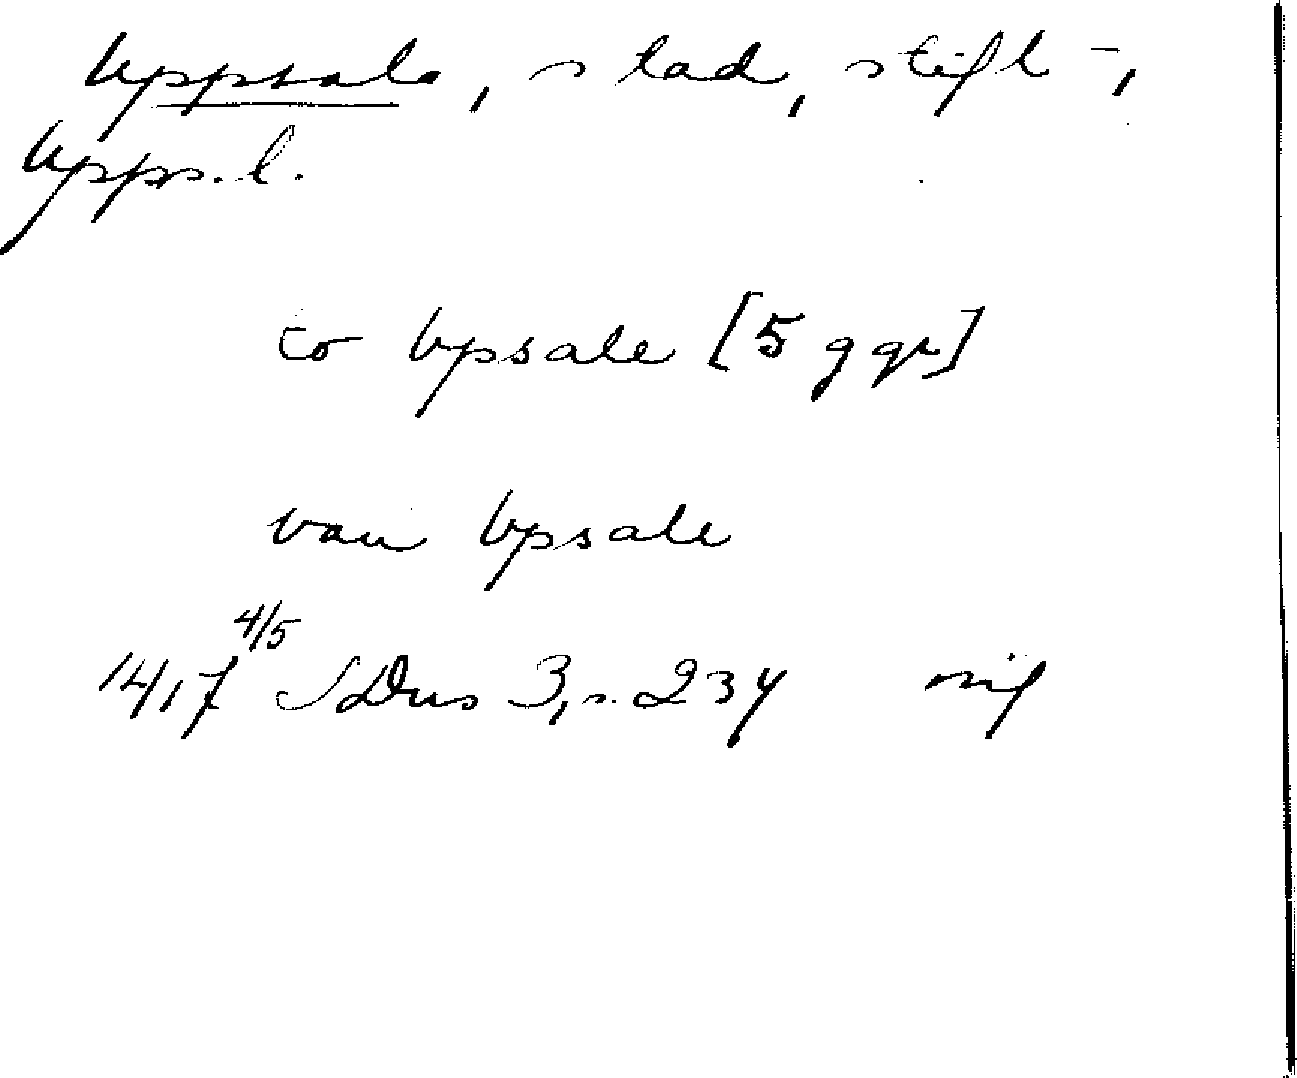 Uppsala, stad, stift -,
Upps. l.
to Vpsale [5 ggr]
van Vpsale
1417 4/5 SDns 3, s. 234 nif